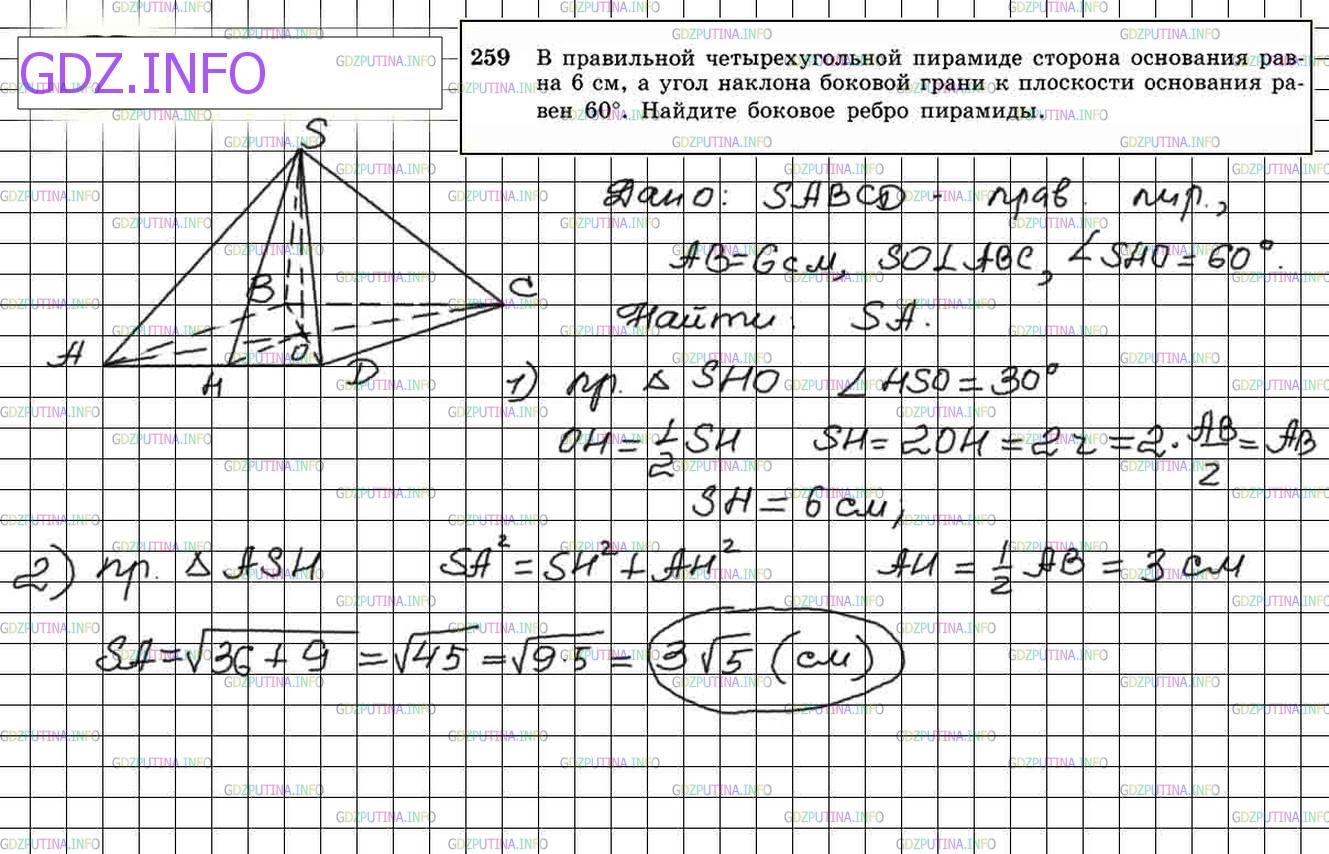 GDZ.INFO
259 В правильной четырехугольной пирамиде сторона основания рав-
на 6 см, а угол наклона боковой грани к плоскости основания ра-
вен 60°. Найдите боковое ребро пирамиды.
S
B
C
A
H
O
D
Дано: SABCD - прав. пир.,
AB=6см, SO⊥ABC, ∠SHO=60°.
Найти: SA.
1) пр. △ SHO ∠HSO=30°
OH=1/2 SH SH=2OH=2r=2·AB/2=AB
SH=6см;
2) пр. △ ASH SA²=SH²+AH² AH=1/2 AB=3см
SA=√36+9=√45=√9·5=3√5 (см)
GDZPUTINA.INFO